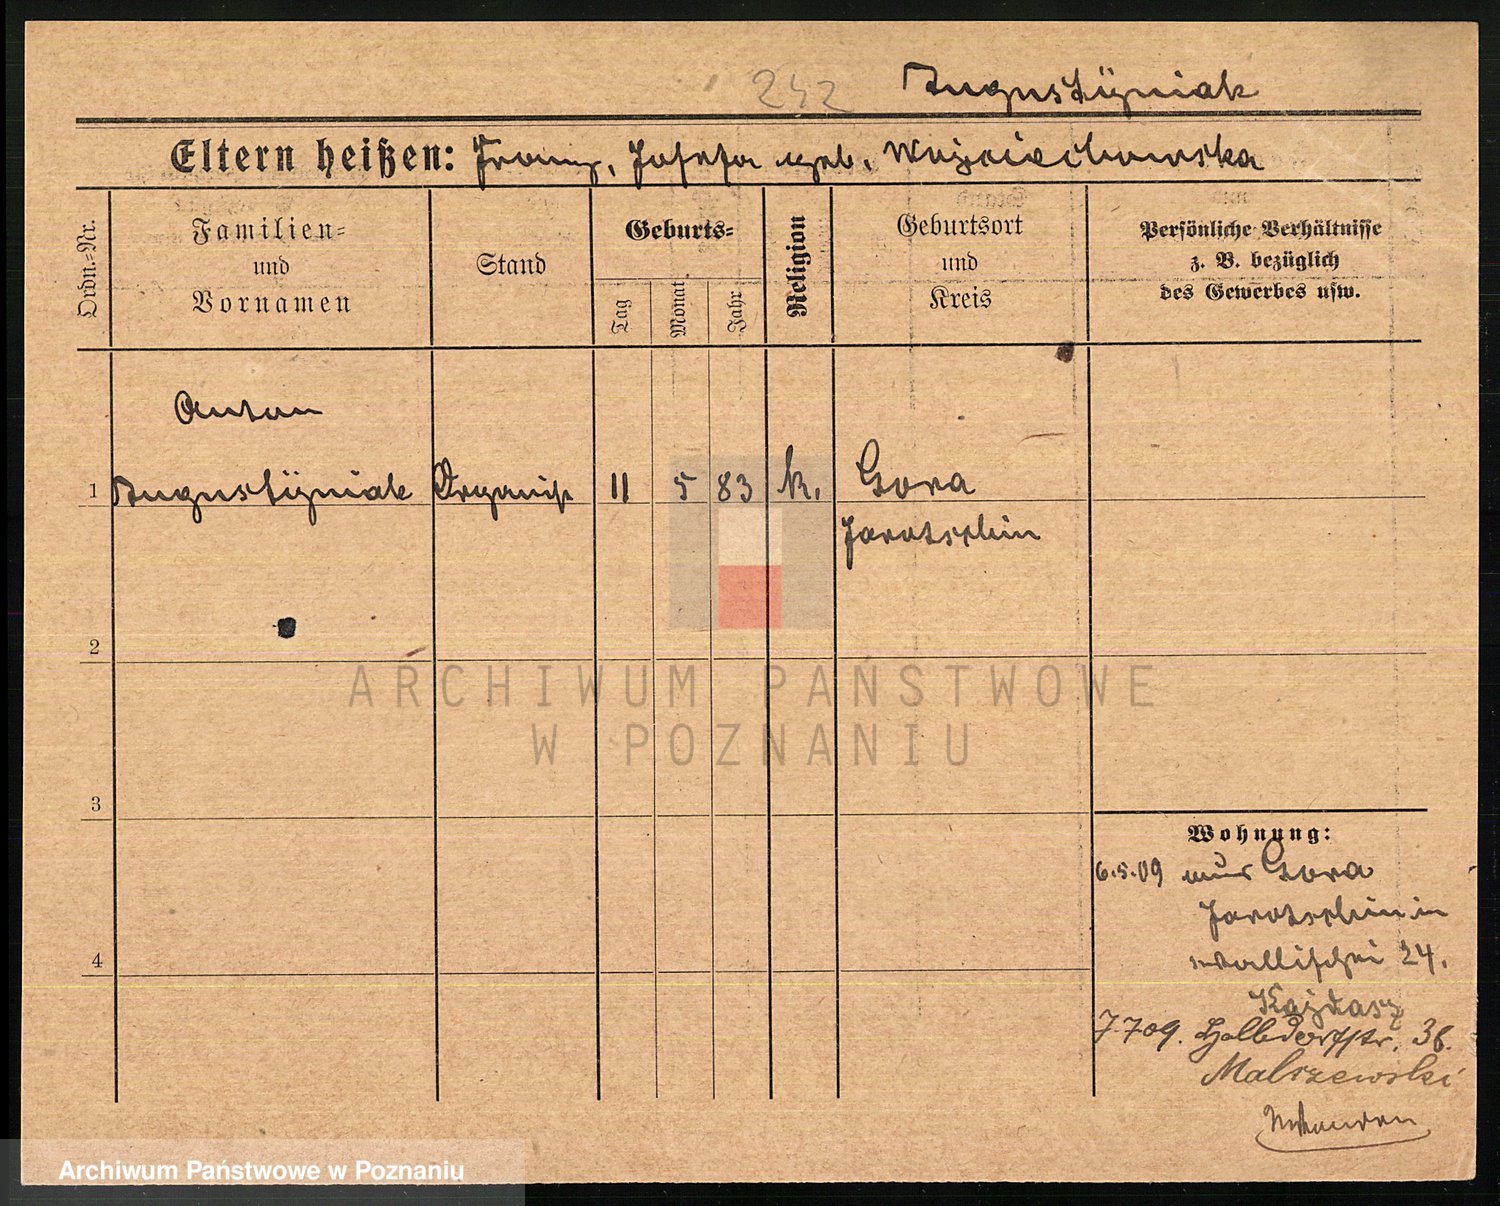 242 Augustÿniak
Eltern heißen: Franz, Josefa geb. Wojciechowska
Ordn.=Nr.
Familien=
und
Vornamen
Stand
Geburts=
Tag
Monat
Jahr
Religion
Geburtsort
und
Kreis
Persönliche Verhältnisse
z. B. bezüglich
des Gewerbes usw.
Anton
1 Augustÿniak Organist 11 5 83 k. Gora
Jarotschin
2
ARCHIWUM PAŃSTWOWE
W POZNANIU
3
Wohnung:
6.5.09 aus Gora
Jarotschin in
Wallischei 24.
Kajdasz
7.7.09. Halbdorfstr. 36.
Malszewski
4
Archiwum Państwowe w Poznaniu